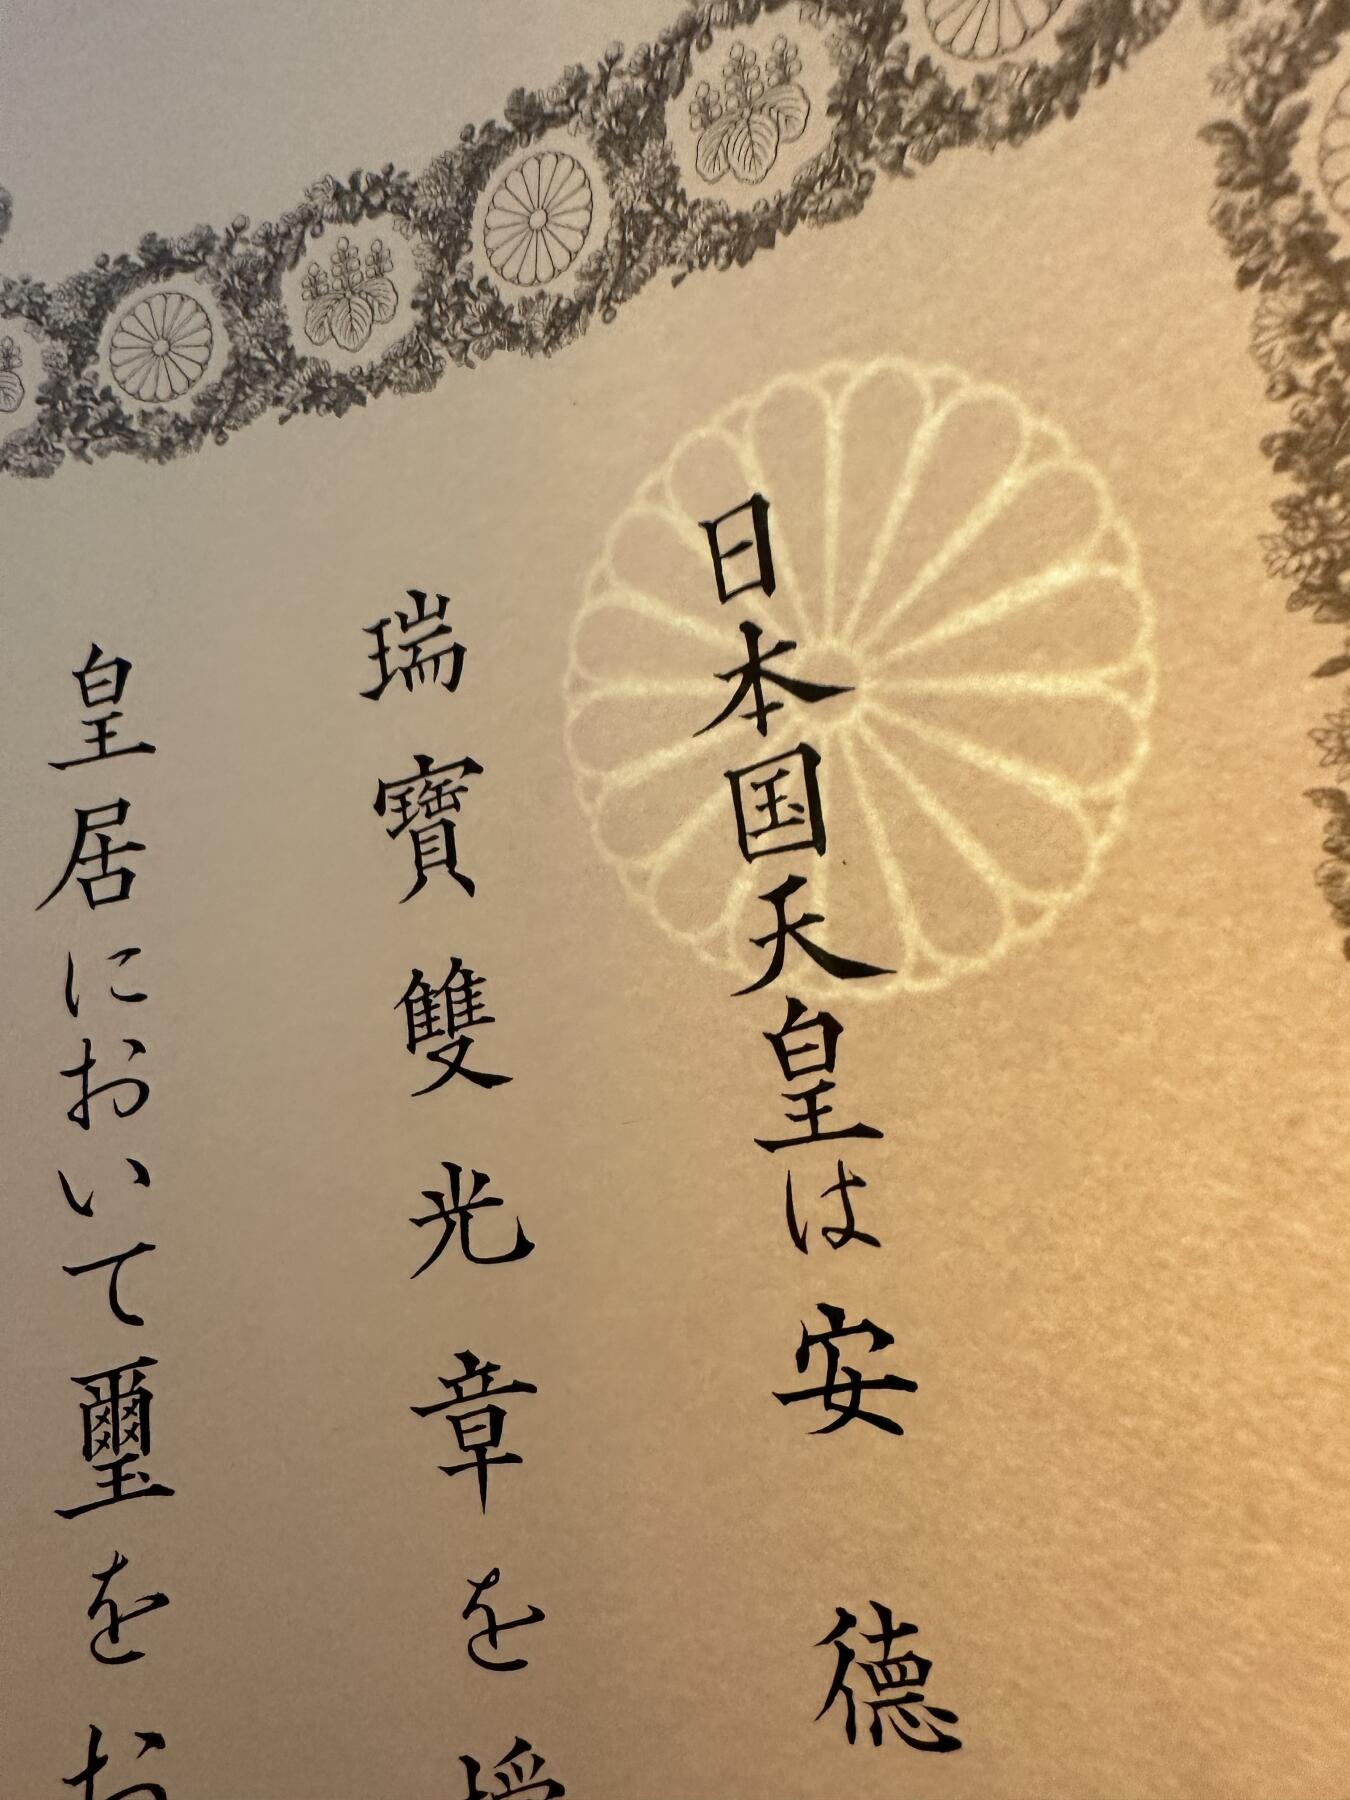 日本国天皇は安德
瑞寶雙光章を授
皇居において璽をお